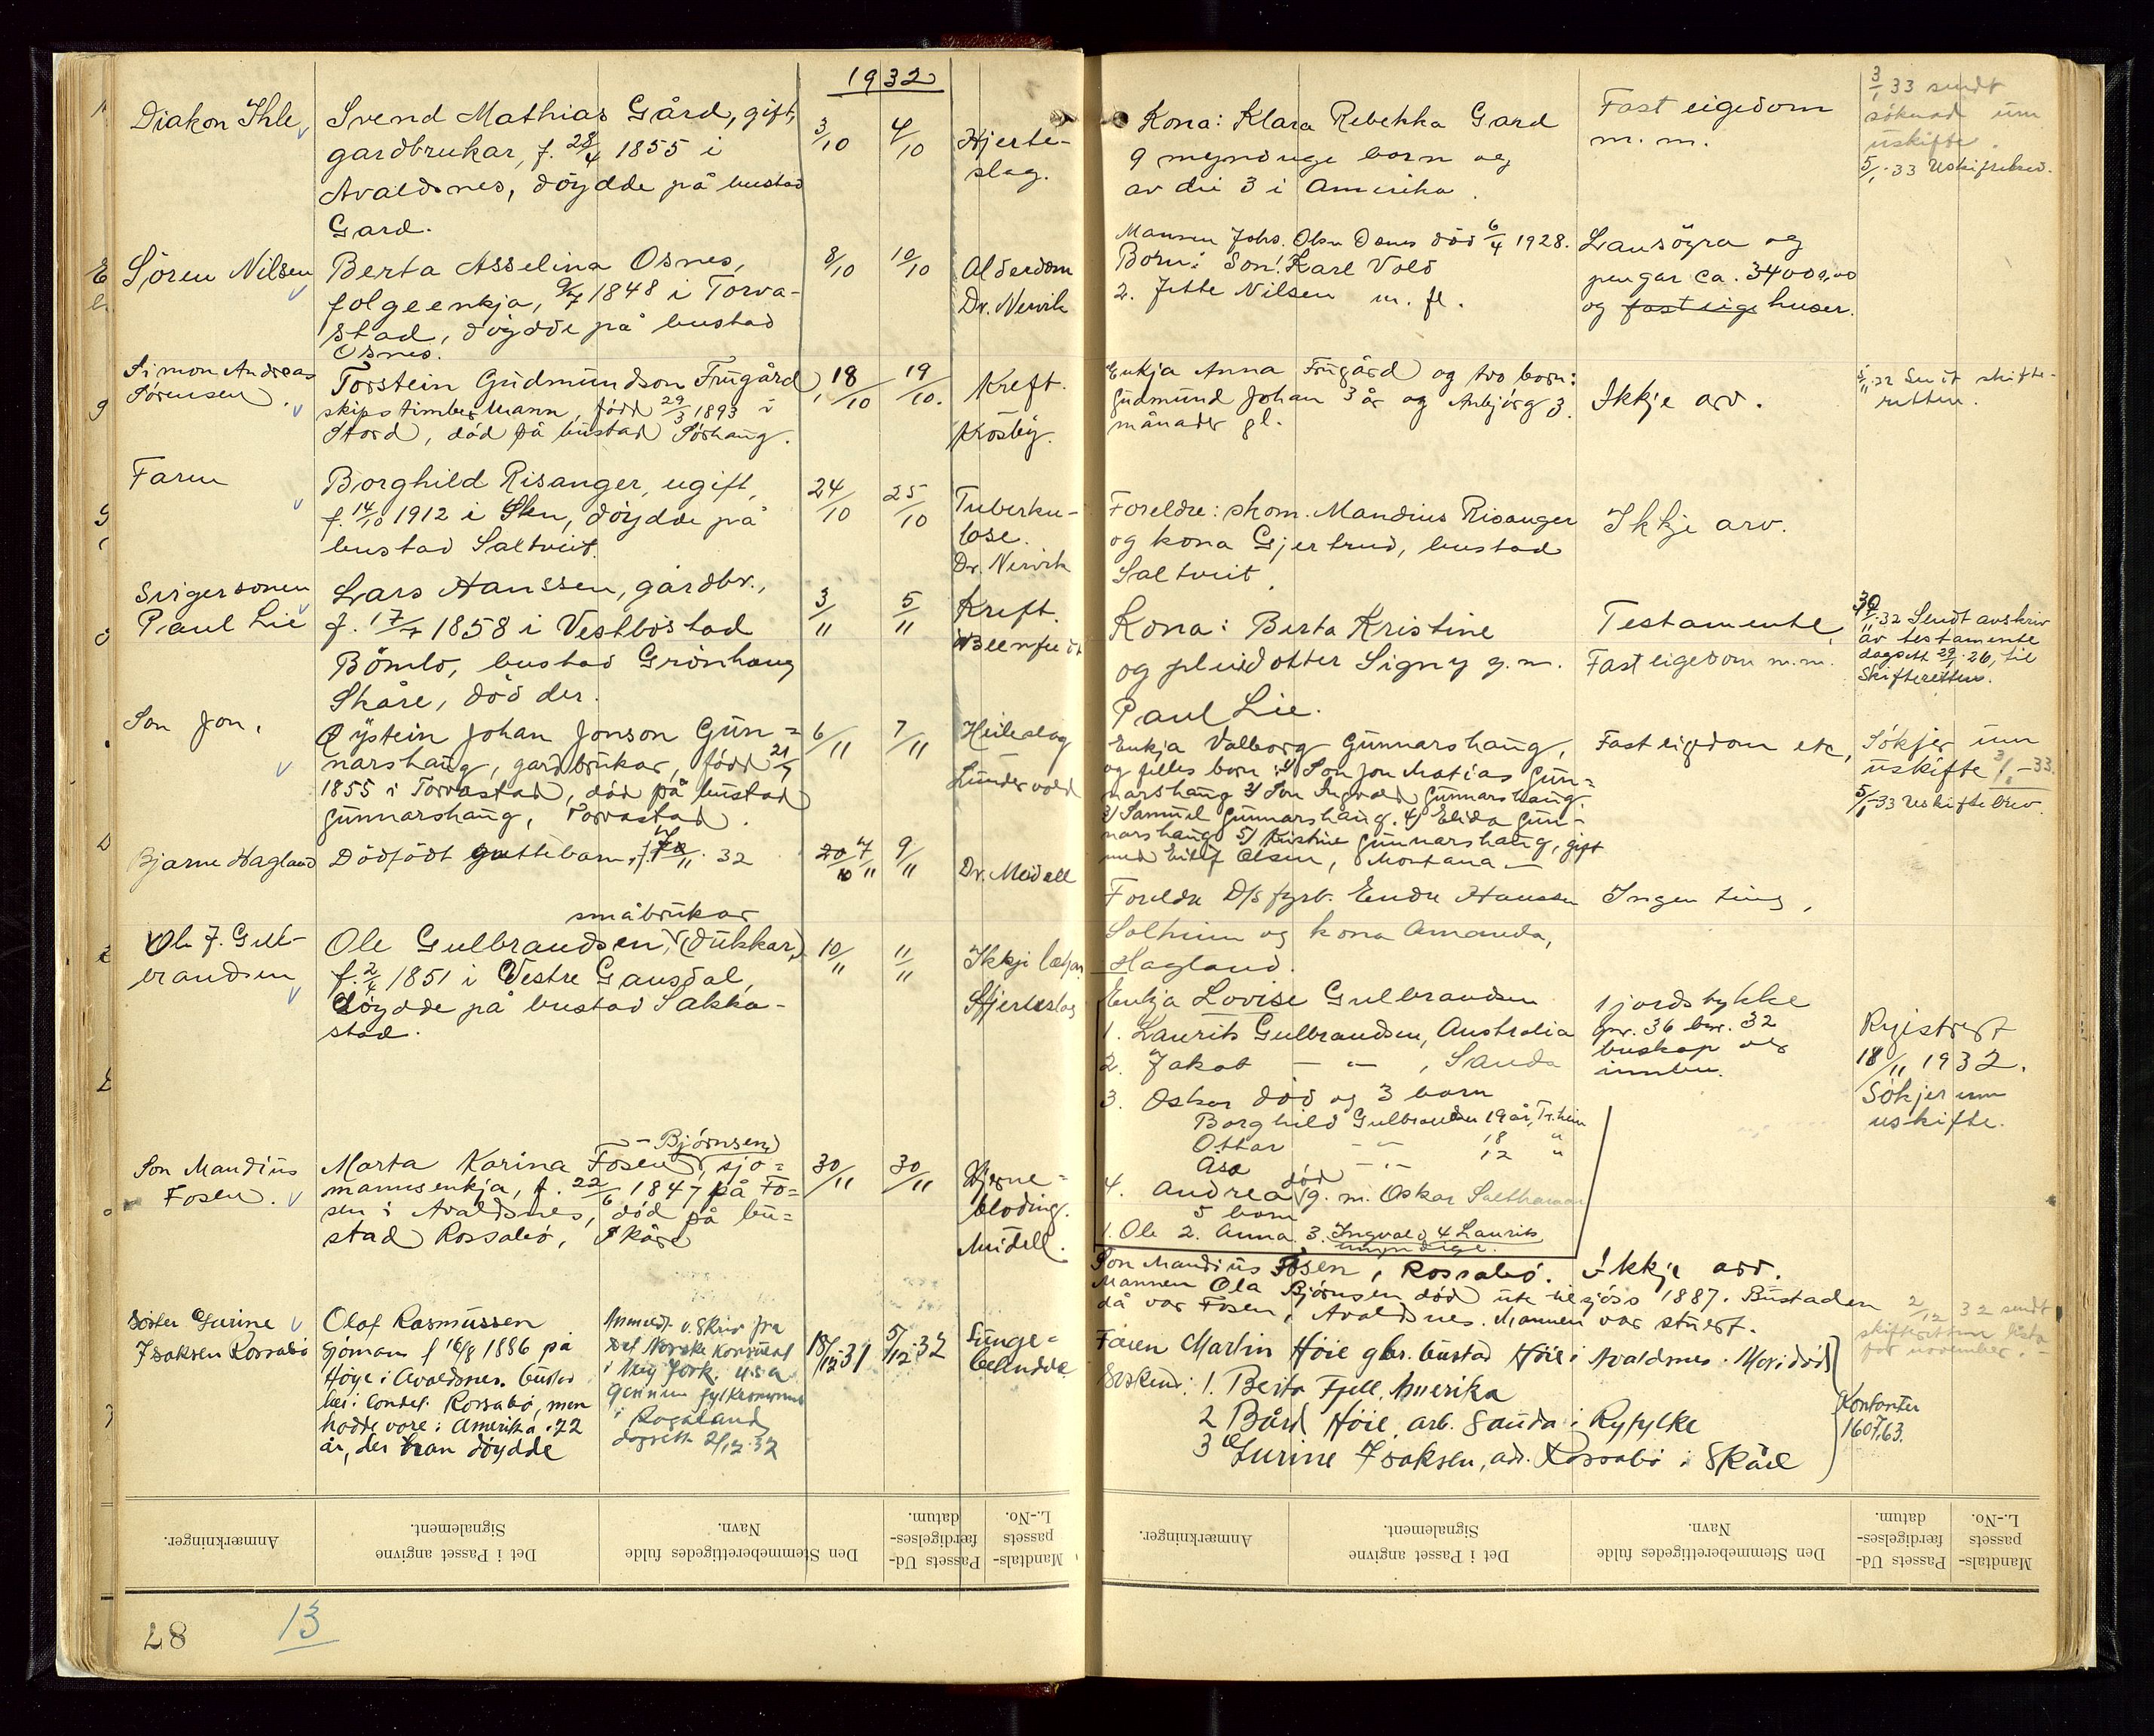 1932
Diakon Ihle
Svend Mathias Gård, gift,
gardbrukar, f. 28/4 1855 i
Avaldsnes, döydde på bustad
Gard.
3/10
4/10
Hjerte-
slag.
Kona: Klara Rebekka Gard
9 mynduge born og
av dei 3 i Amerika.
Fast eigedom
m. m.
3/1 33 sendt
söknad um
uskifte.
5/1-33
Sören Nilsen
Berta Asselina Osnes,
folgeenkja, 1848 i Torva-
stad, döydde på bustad
Osnes.
8/10
10/10
Alderdom
Dr. Nervik
Mannen Johs. Olsn Osnes död 6/4 1928.
Born: Son: Karl Vold
2. Jette Nilsen m. fl.
Lausöyra og
pengar ca. 34000,00
og fast eige huser.
Simon Andreas
Sörensen.
Torstein Gudmundson Frugård,
skipstimbermann, född 29/3 1893 i
Stord, död på bustad Sörhaug.
18/10
19/10.
Kreft.
Krosby.
Enkja Anna Frugård og tvo born:
Gudmund Johan 3 år og Anbjörg 3.
månader gl.
Ikkje arv.
32 Sendt skifte-
retten.
Faren
Borghild Risanger, ugift,
f. 14/10 1912 i Sken, döydde på
bustad Saltveit.
24/10
25/10
Tuberku-
lose.
Dr. Nervik
Foreldre: skom. Mandius Risanger
og kona Gjertrud, bustad
Saltveit.
Ikkje arv.
Svigersonen
Paul Lie
Lars Hanssen, gårdbr.,
f. 17/7 1858 i Vestböstad
Bömlo, bustad Grönhaug
Skåre, död der.
3/11
5/11
Kreft.
Kona: Berta Kristine
og pleiedotter Signy g. m.
Paul Lie.
Testamente,
Fast eigedom m. m.
32 Sendt avskriv
av testamente
dagsett 29/1 26, til
Skifteretten.
Son Jon.
Öystein Johan Jonson Gun-
narshaug, gardbrukar, född 21/
1855 i Torvastad, död på bustad
Gunnarshaug, Torvastad.
6/11
7/11
Heileslag
Lundervold
Enkja Valborg Gunnarshaug,
og felles born: 1/ Son Jon Matias Gun-
narshaug 2/ Son Ingvald Gunnarshaug.
3/ Samuel Gunnarshaug. 4/ Elida Gun-
narshaug 5/ Kristine Gunnarshaug, gift
med Eilif Olsen, Montana —
Fast eigdom etc,
Sökjer um
uskifte 3/1-33.
5/1-33 Uskiftebrev.
Bjarne Hagland
Dödfödt guttebarn, f. 32
20/10 7/11
9/11
Dr. Meidell
Foreldre D/s fyrb. Endre Hanssen
Solheim og kona Amanda,
Hagland.
Ingen ting,
Ole J. Gul-
brandsen
småbrukar
Ole Gulbrandsen, (dukkar,)
f. 2/4 1851 i Vestre Gausdal,
Döydde på bustad Sakka-
stad.
10/11
11/11
Ikkje
Hjerteslag
Enkja Lovise Gulbrandsen
1. Laurits Gulbrandsen, Australia
2. Jakob — " — , Sauda
3. Oskar död og 3 born
Borghild Gulbrandsen 19 år, Tr.heim
Ottar — " — 18 "
Åse — " — 12 "
4. Andrea död g. m. Oskar Salthamar
5 born
1. Ole 2. Anna 3. Ingvald 4 Laurits
umyndige.
1 jordstykke
gnr. 36 bnr. 32
buskap og
innbu.
Registrert
18/11 1932.
Sökjer um
uskifte.
Son Mandius
Fosen.
— Björnsen
Marta Karina Fosen, sjö-
mannsenkja, f. 22/6 1847 på Fo-
sen i Avaldsnes, död på bu-
stad Rossabö, Skåre
30/11
30/11
Hjerne-
blöding.
Meidell.
Son Mandius Fosen, Rossabö.
Ikkje arv.
Mannen Ola Björnsen död ute til sjöss 1887. Bustaden
då var Fosen, Avaldsnes. Mannen var stuert.
2/12 32 sendt
skifteretten lista
for november.
Söster Gurine
Isaksen Rossabö
Olaf Rasmussen
sjöman f 16/8 1886 på
Höye i Avaldsnes. Bustad
her i landet Rossabö, men
hadde vore i Amerika i 22
år, der han döydde
Anmeldt v. Skriv fra
Det Norske Konsulat
i New York. U.S.A
Gjennem fylkesmannen
i Rogaland
dagsett 2/12 32
18/12-31
5/12-32
Lunge-
betendelse
Faren Martin Höie gbr. bustad Höie i Avaldsnes. Mori död
Sysken: 1. Berta Fjell, Amerika
2 Bård Höie, arb. Sauda i Ryfylke
3 Gurine Isaksen, adr. Rossabö i Skåre
Kontanter
1607,63.
Anmærkninger.
Det i Passet angivne
Signalement.
Den Stemmeberettigedes fulde
Navn.
Passets Ud-
færdigelses-
datum.
Mandtals-
passets
L.-No.
Anmærkninger.
Det i Passet angivne
Signalement.
Den Stemmeberettigedes fulde
Navn.
Passets Ud-
færdigelses-
datum.
Mandtals-
passets
L.-No.
28
13